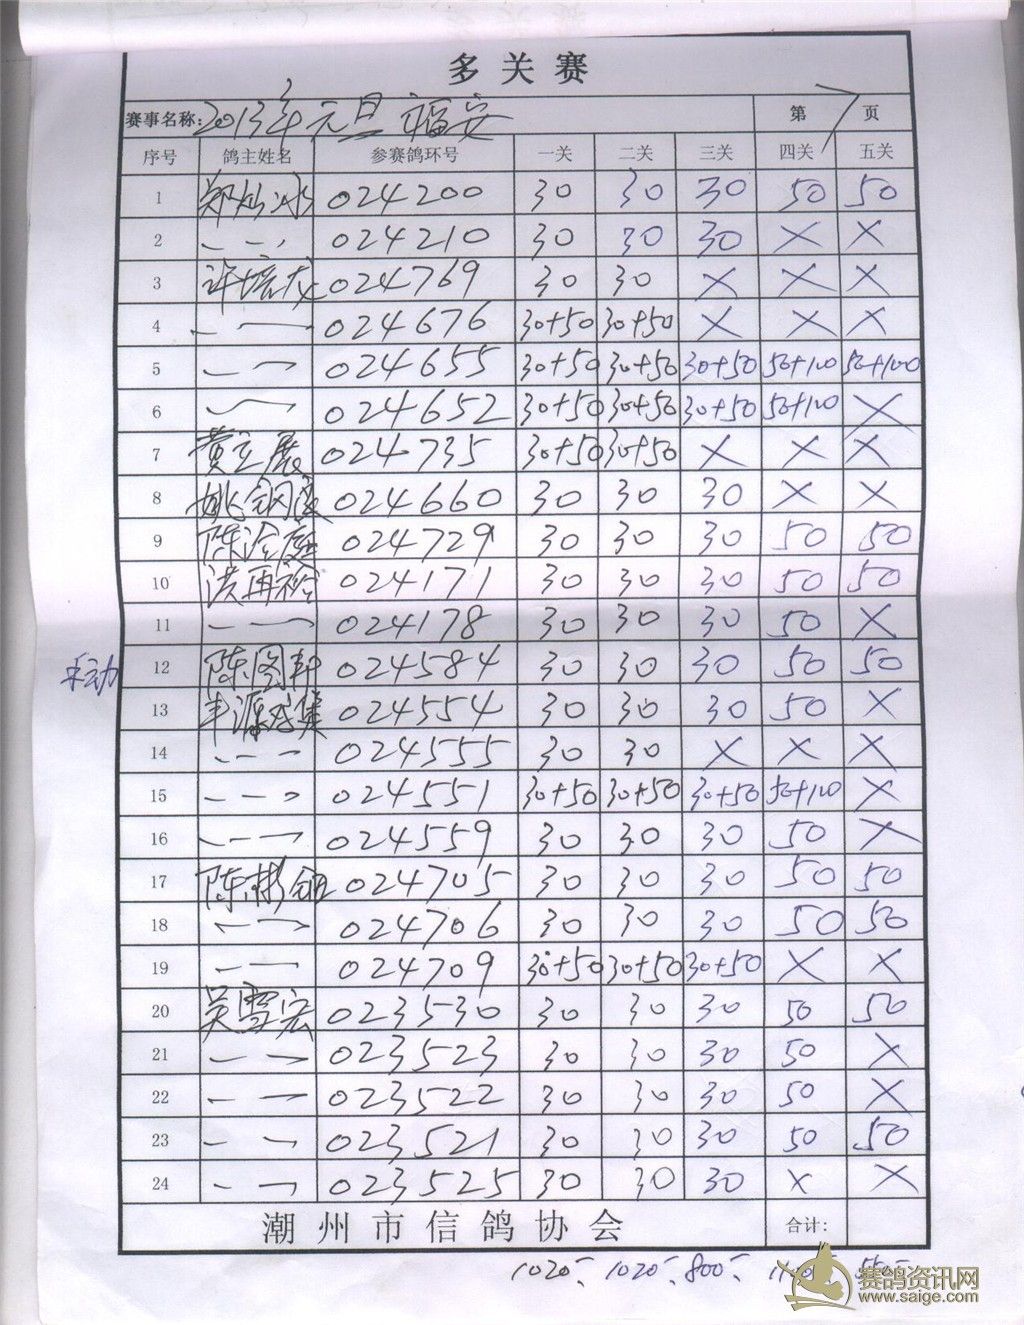 多关赛
赛事名称: 2013年元旦福安 第 7 页
序号 鸽主姓名 参赛鸽环号 一关 二关 三关 四关 五关
1 郑灿冰 024200 30 30 30 50 50
2 — — 024210 30 30 30 × ×
3 许培龙 024769 30 30 × × ×
4 — — 024676 30+50 30+50 × × ×
5 — — 024655 30+50 30+50 30+50 50+100 50+100
6 — — 024652 30+50 30+50 30+50 50+100 ×
7 黄立展 024735 30+50 30+50 × × ×
8 姚 024660 30 30 30 × ×
9 陈 024729 30 30 30 50 50
10 洪再裕 024171 30 30 30 50 50
11 — — 024178 30 30 30 50 ×
手动 12 陈图邦 024584 30 30 30 50 50
13 丰源 024554 30 30 30 50 ×
14 — — 024555 30 30 × × ×
15 — — 024551 30+50 30+50 30+50 50+100 ×
16 — — 024559 30 30 30 50 ×
17 陈彬 024705 30 30 30 50 50
18 — — 024706 30 30 30 50 50
19 — — 024709 30+50 30+50 30+50 × ×
20 吴雪宏 023530 30 30 30 50 50
21 — — 023523 30 30 30 50 ×
22 — — 023522 30 30 30 50 ×
23 — — 023521 30 30 30 50 50
24 — — 023525 30 30 30 × ×
潮州市信鸽协会 合计:
1020- 1020- 800-
赛鸽资讯网
www.saige.com